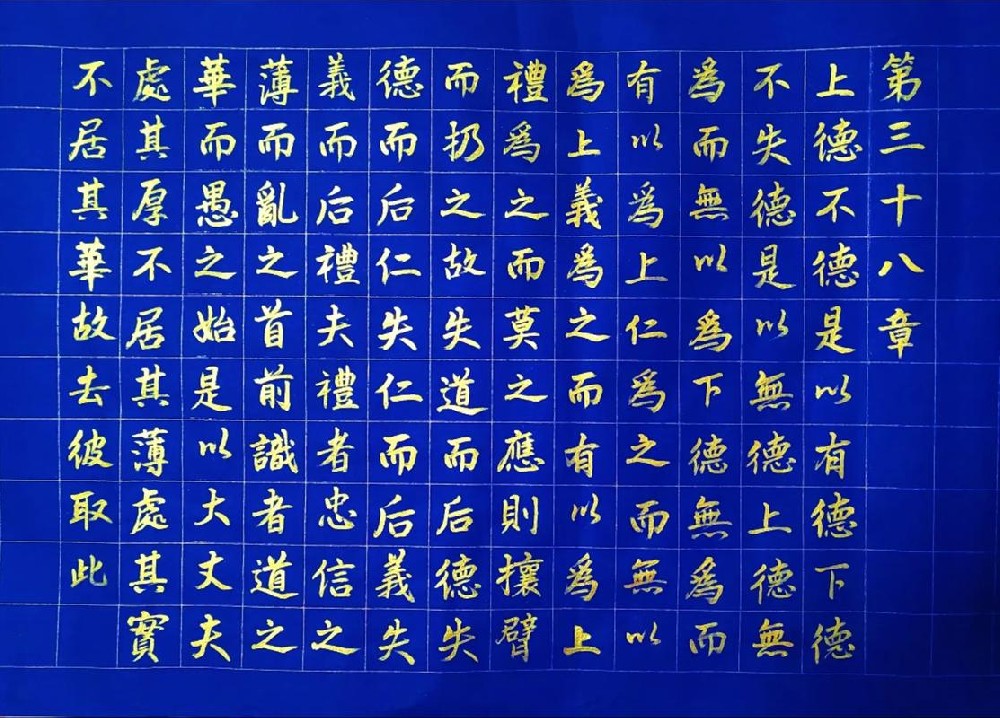 第三十八章
上德不德是以有德下德
不失德是以無德上德無
為而無以爲下德無爲而
有以爲上仁爲之而無以
爲上義爲之而有以爲上
禮爲之而莫之應則攘臂
而扔之故失道而后德失
德而后仁失仁而后義失
義而后禮夫禮者忠信之
薄而亂之首前識者道之
華而愚之始是以大丈夫
處其厚不居其薄處其實
不居其華故去彼取此